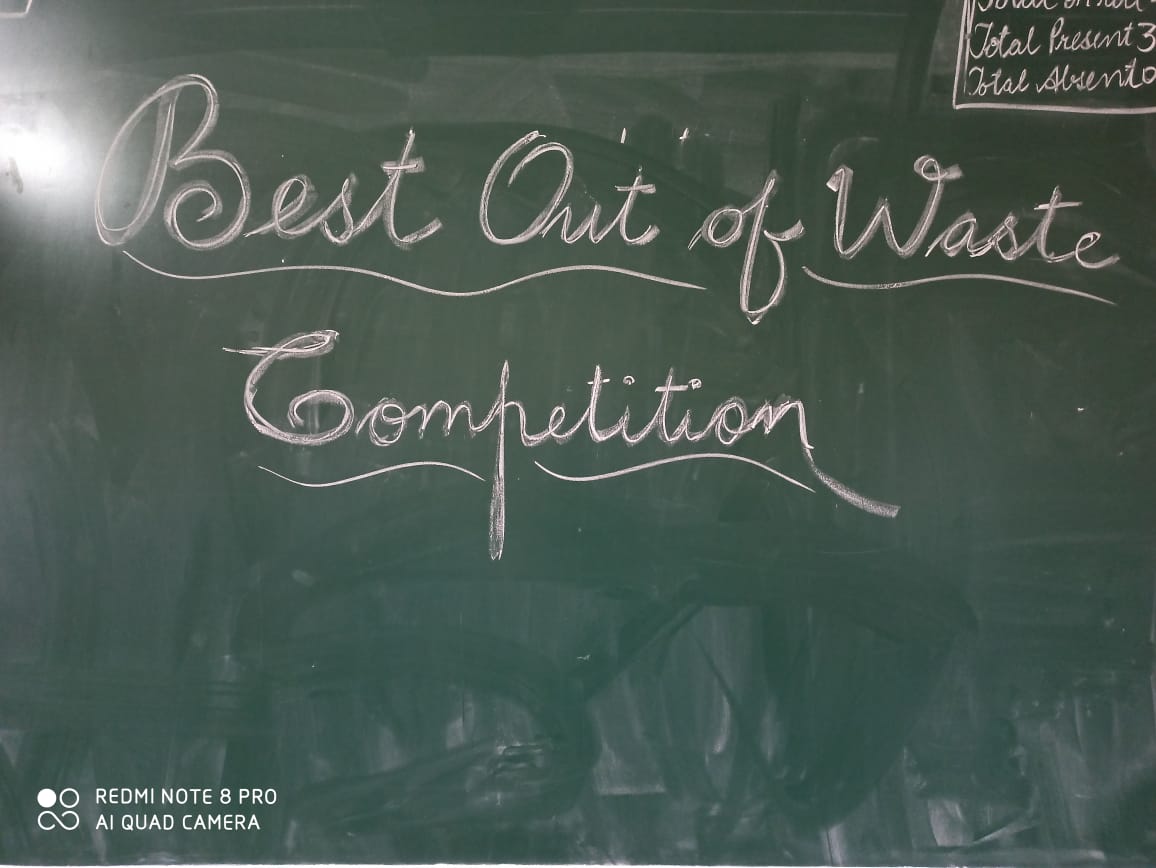 Total Present 3
Total Absent 0
Best Out of Waste
Competition
REDMI NOTE 8 PRO
AI QUAD CAMERA